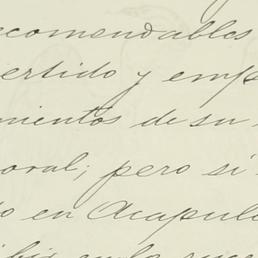 recomendables
vertido y emp
mientos de su
oral; pero si
o en Acapul